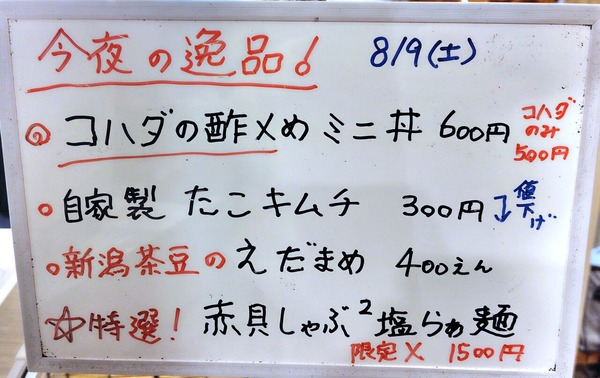 今夜の逸品! 8/9(土)
◎ コハダの酢〆め ミニ丼 600円 コハダのみ500円
○ 自家製 たこキムチ 300円 値下げ
○ 新潟茶豆のえだまめ 400えん
☆特選! 赤貝しゃぶ²塩らぁ麺
限定X 1500円